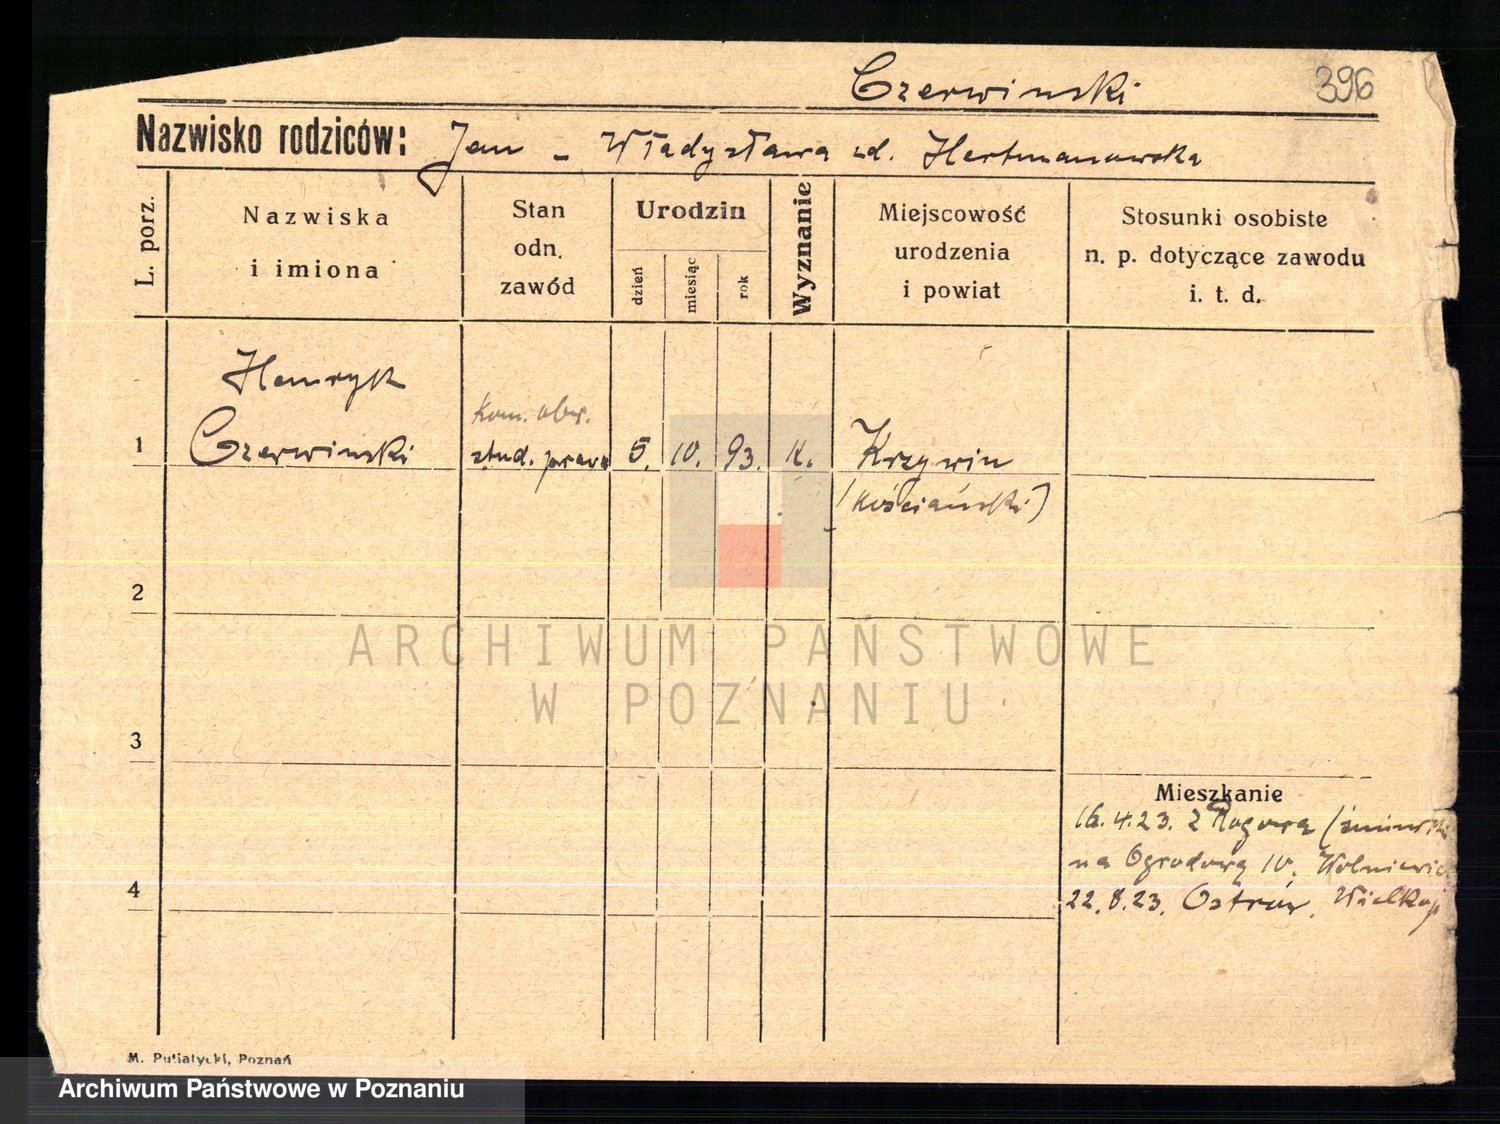 Czerwinski
396
Nazwisko rodziców: Jan - Władysława zd. Hertmanowska
L. porz.
Nazwiska
i imiona
Stan
odn.
zawód
Urodzin
dzień
miesiąc
rok
Wyznanie
Miejscowość
urodzenia
i powiat
Stosunki osobiste
n. p. dotyczące zawodu
i. t. d.
Henryk
Kom. obw.
1 Czerwinski stud. prawa 5. 10. 93. K. Krzywin
(Kościański)
2
ARCHIWUM PAŃSTWOWE
W POZNANIU
3
Mieszkanie
16.4.23. z Rogowa (żnińsk
na Ogrodową 10.
4
22.8.23. Ostrów. Wielkop
M. Putiatycki, Poznań
Archiwum Państwowe w Poznaniu